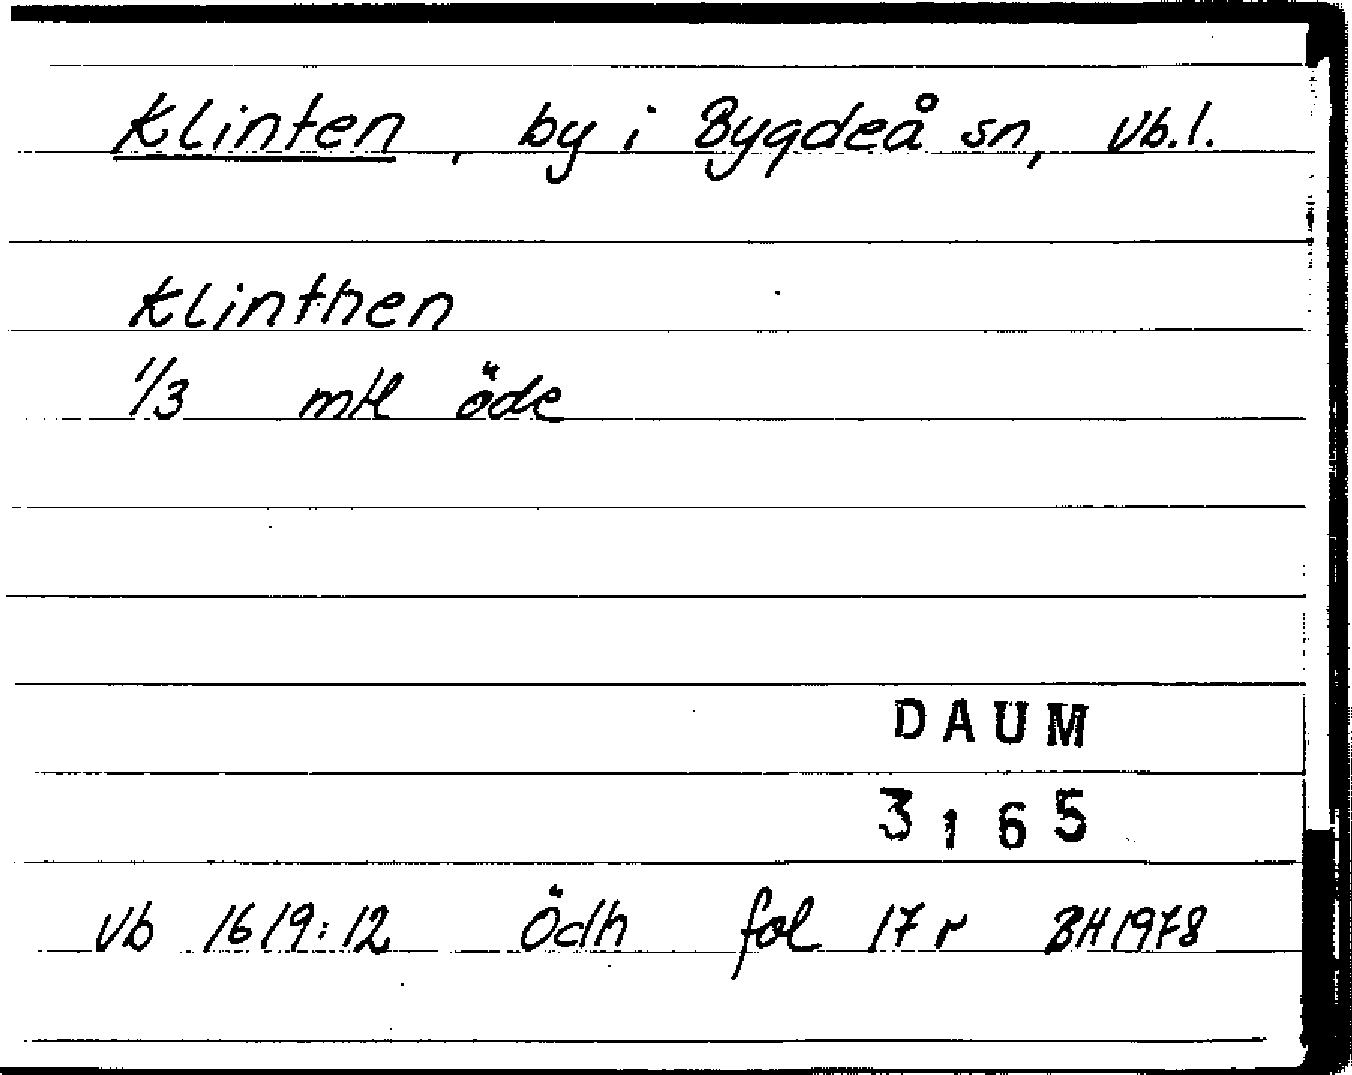 Klinten, by i Bygdeå sn, Vb.l.
Klinthen
1/3 mtl öde
DAUM
3165
Vb 1619:12 Ödh fol 17 r BH 1978